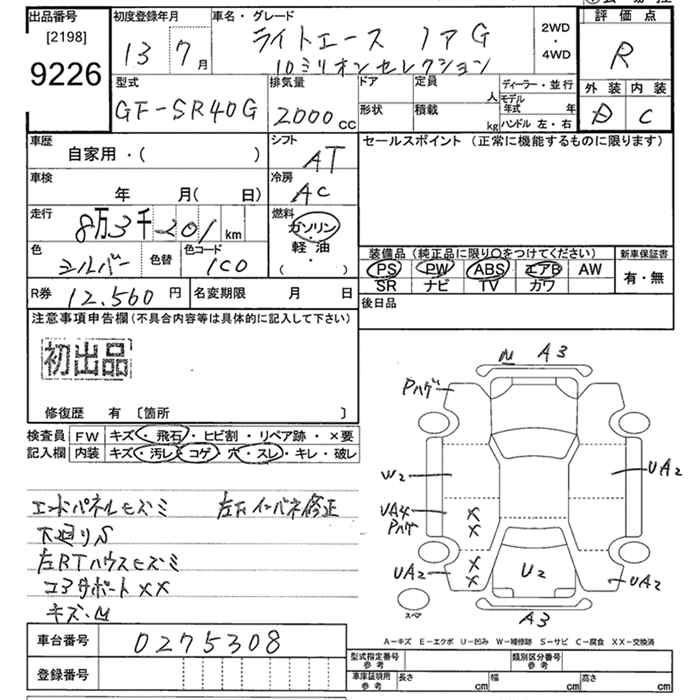 出品番号
[2198]
9226
初度登録年月
13 7月
車名・グレード
ライトエース ノアG
10ミリオンセレクション
2WD
・
4WD
評価点
R
外装 内装
D C
型式
GF-SR40G
排気量
2000cc
ドア
定員
人
形状
積載
kg
ディーラー・並行
モデル年式 年
ハンドル 左・右
車歴
自家用・( )
シフト
AT
セールスポイント (正常に機能するものに限ります)
車検
年 月( 日)
冷房
AC
走行
8万3千201km
燃料
ガソリン
・
軽油
( )
色
シルバー
色替
色コード
1C0
装備品(純正品に限り○をつけてください)
新車保証書
PS PW ABS エアB AW
有・無
SR ナビ TV カワ
R券
12,560円
名変期限 月 日
後日品
注意事項申告欄(不具合内容等は具体的に記入して下さい)
初出品
修復歴 有 〔箇所 〕
検査員
記入欄
FW キズ・飛石・ヒビ割・リペア跡・×要
内装 キズ・汚レ・コゲ・穴・スレ・キレ・破レ
エンドパネルヒズミ 左下インパネ修正
下廻りS
左RTハウスヒズミ
コアサポートXX
キズ・M
M A3
Pハゲ
W2
UA2
UA4
Pハゲ
X
X
X
X
UA2
U2
UA2
スペア
A3
A−キズ E−エクボ U−凹み W−補修跡 S−サビ C−腐食 XX−交換済
車台番号
0275308
登録番号
型式指定番号
参考
類別区分番号
参考
車庫証明用
参考
長さ cm
幅 cm
高さ cm